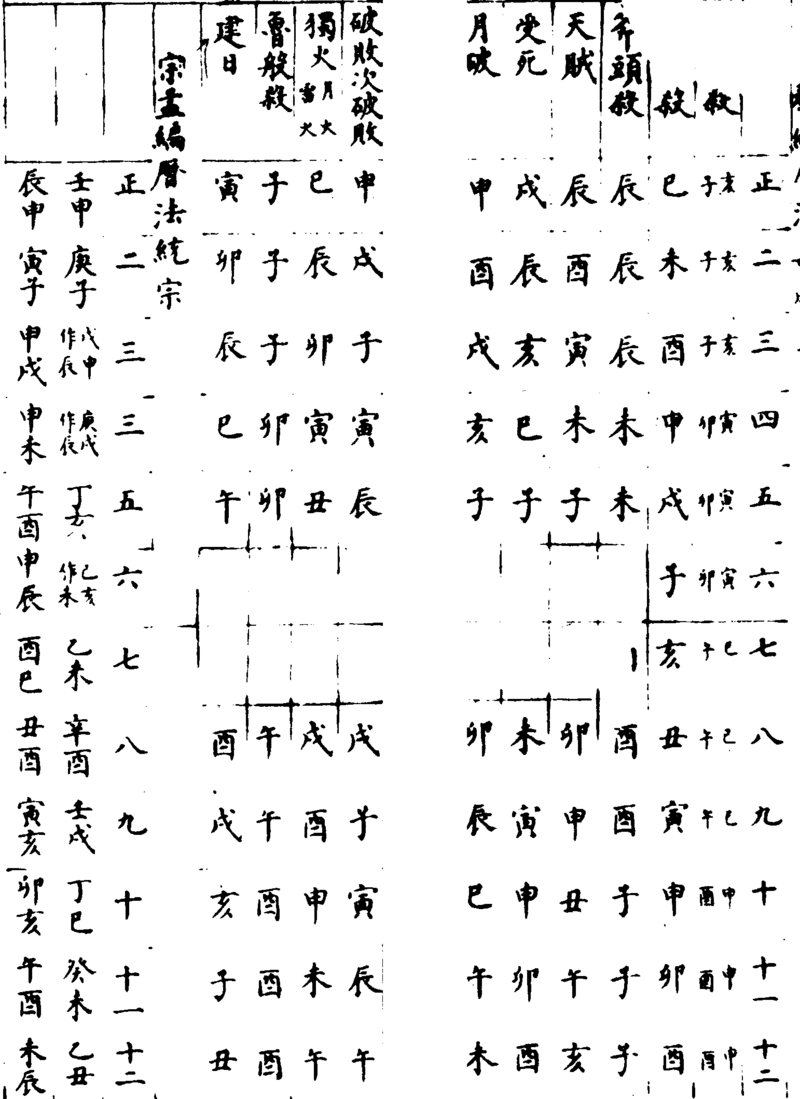 正 二 三 四 五 六 七 八 九 十 十一 十二
殺 子亥 子亥 子亥 卯寅 卯寅 卯寅 午巳 午巳 午巳 酉申 酉申 酉申
殺 巳 未 酉 申 戌 子 亥 丑 寅 申 卯 酉
斧頭殺 辰 辰 辰 未 未 酉 酉 子 子 子
天賊 辰 酉 寅 未 子 卯 申 丑 午 亥
受死 戌 辰 亥 巳 子 未 寅 申 卯 酉
月破 申 酉 戌 亥 子 卯 辰 巳 午 未
破敗次破敗 申 戌 子 寅 辰 戌 子 寅 辰 午
獨火 月火 雷火 巳 辰 卯 寅 丑 戌 酉 申 未 午
魯般殺 子 子 子 卯 卯 午 午 酉 酉 酉
建日 寅 卯 辰 巳 午 酉 戌 亥 子 丑
宗孟編曆法統宗
正 二 三 三 五 六 七 八 九 十 十一 十二
壬申 庚子 戊申作辰 庚戌作辰 丁亥 己亥作未 乙未 辛酉 壬戌 丁巳 癸未 乙丑
辰申 寅子 申戌 申未 午酉 申辰 酉巳 丑酉 寅亥 卯亥 午酉 未辰